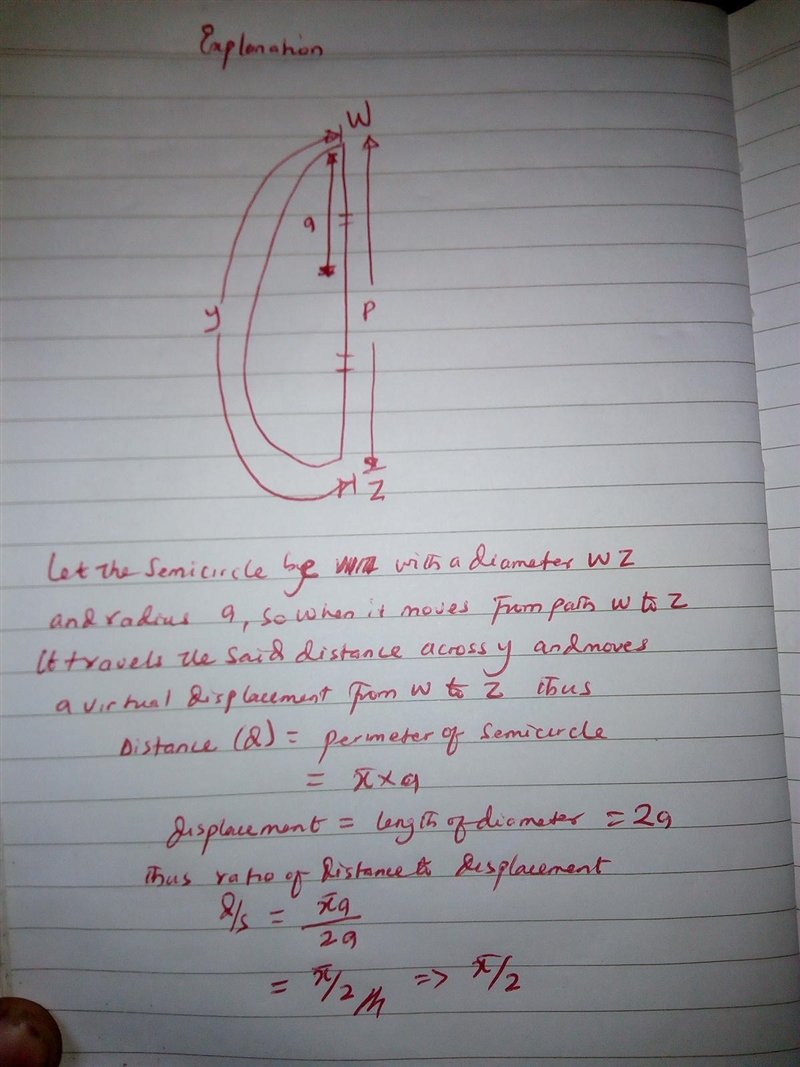 Explanation
W
a
y
P
Z
Let the Semicircle be with a diameter WZ
and radius a, so when it moves from path W to Z
It travels the said distance across y and moves
a virtual displacement from W to Z thus
Distance (d) = perimeter of semicircle
= π × a
displacement = length of diameter = 2a
thus ratio of distance to displacement
d/s = πa/2a
= π/2 => π/2